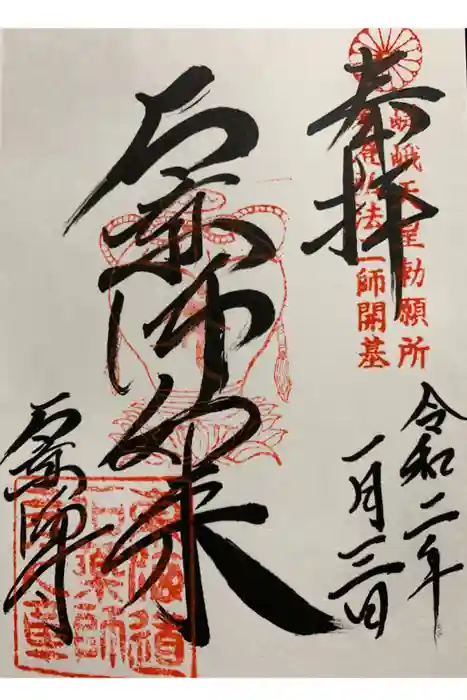 奉拝
嵯峨天皇勅願所
弘法大師開基
令和二年
一月三日
石薬師如来
石薬師寺
東海道
石薬師